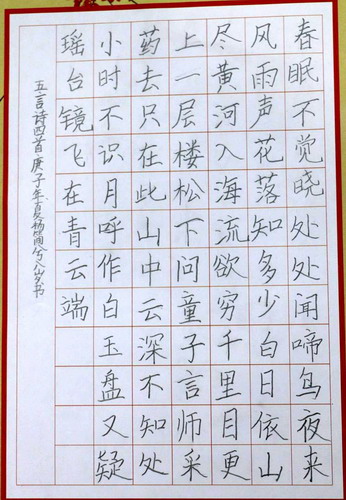 春眠不觉晓处处闻啼鸟夜来
风雨声花落知多少白日依山
尽黄河入海流欲穷千里目更
上一层楼松下问童子言师采
药去只在此山中云深不知处
小时不识月呼作白玉盘又疑
瑶台镜飞在青云端
五言诗四首庚子年夏杨蕳兮八岁书